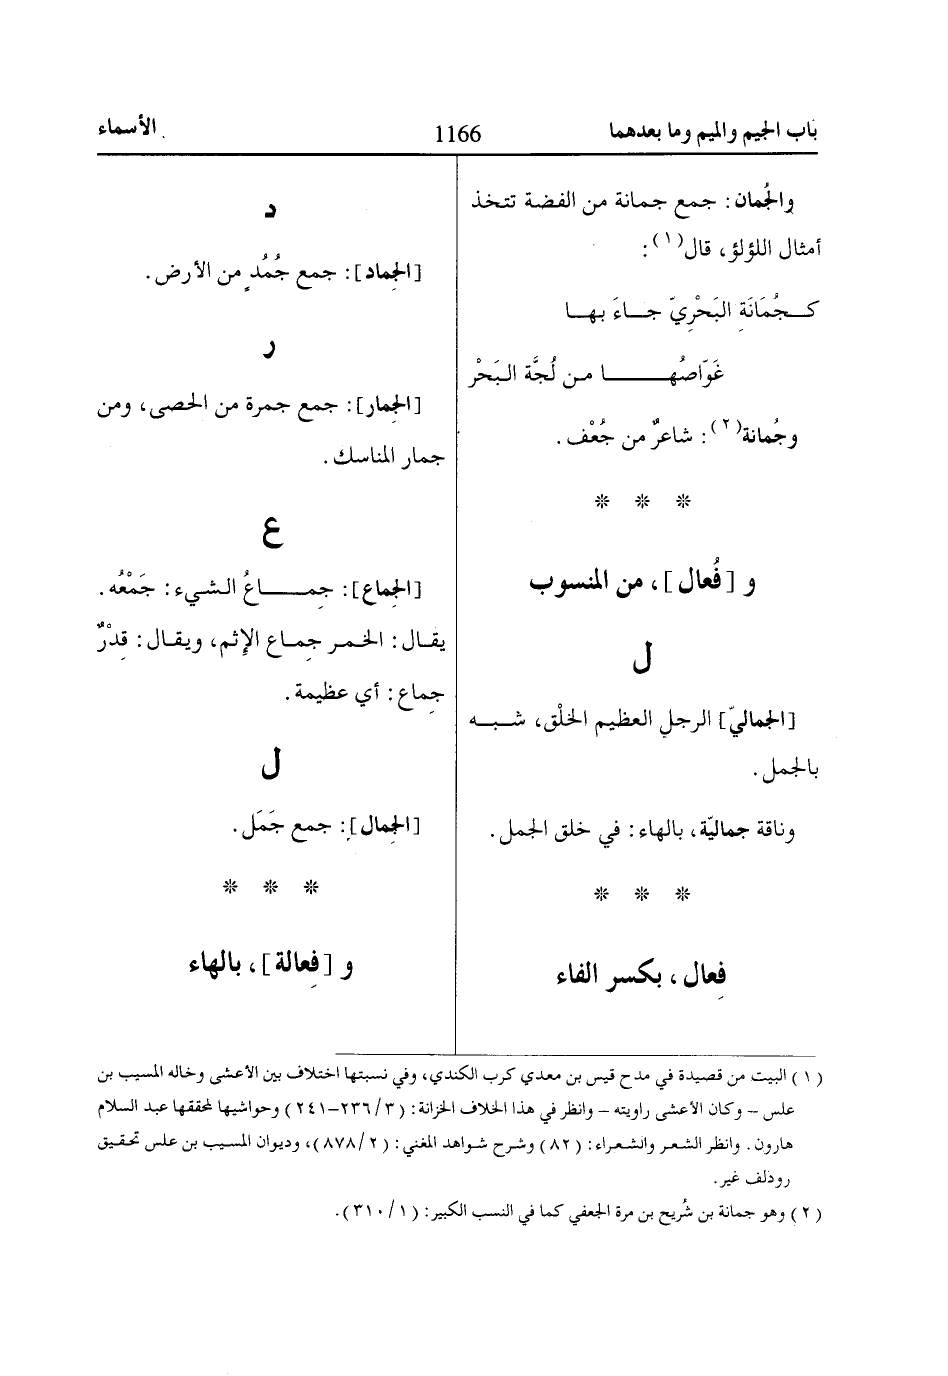 باب الجيم والميم وما بعدهما 1166 الأسماء
والجُمان: جمع جمانة من الفضة تتخذ
أمثال اللؤلؤ، قال(١):
كـجُمَانَةِ البَحْرِيّ جاءَ بها
غَوّاصُها من لُجَّة البَحْرِ
وجُمانة(٢): شاعرٌ من جُعْف.
* * *
و [فُعال]، من المنسوب
ل
[الجماليّ] الرجل العظيم الخلْق، شبه
بالجمل.
وناقة جماليّة، بالهاء: في خلق الجمل.
* * *
فِعال، بكسر الفاء
د
[الجِماد]: جمع جُمُدٍ من الأرض.
ر
[الجِمار]: جمع جمرة من الحصى، ومن
جمار المناسك.
ع
[الجِماع]: جِماعُ الشيء: جَمْعُه.
يقال: الخمر جِماع الإثم، ويقال: قِدْرٌ
جِماع: أي عظيمة.
ل
[الجِمال]: جمع جَمَل.
* * *
و [فِعالة]، بالهاء
(١) البيت من قصيدة في مدح قيس بن معدي كرب الكندي، وفي نسبتها اختلاف بين الأعشى وخاله المسيب بن
علس – وكان الأعشى راويته – وانظر في هذا الخلاف الخزانة: (٣/ ٢٣٦–٢٤١) وحواشيها لمحققها عبد السلام
هارون. وانظر الشعر والشعراء: (٨٢) وشرح شواهد المغني: (٢/ ٨٧٨)، وديوان المسيب بن علس تحقيق
رودلف غير.
(٢) وهو جمانة بن شُريح بن مرة الجعفي كما في النسب الكبير: (١/ ٣١٠).